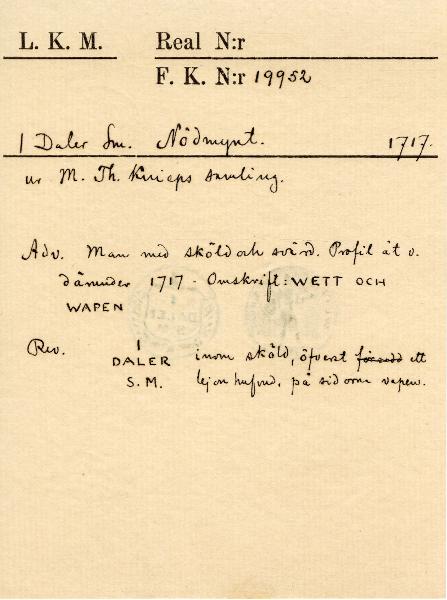 L. K. M. Real N:r
F. K. N:r 19952
1 Daler Sm. Nödmynt. 1717.
ur M. Th. Knieps samling.
Adv. Man med sköld och svärd. Profil åt v.
därunder 1717. Omskrift: WETT OCH
WAPEN
Rev. 1 DALER S.M. inom sköld, öfverst ett
lejonhufvud, på sidorna vapen.